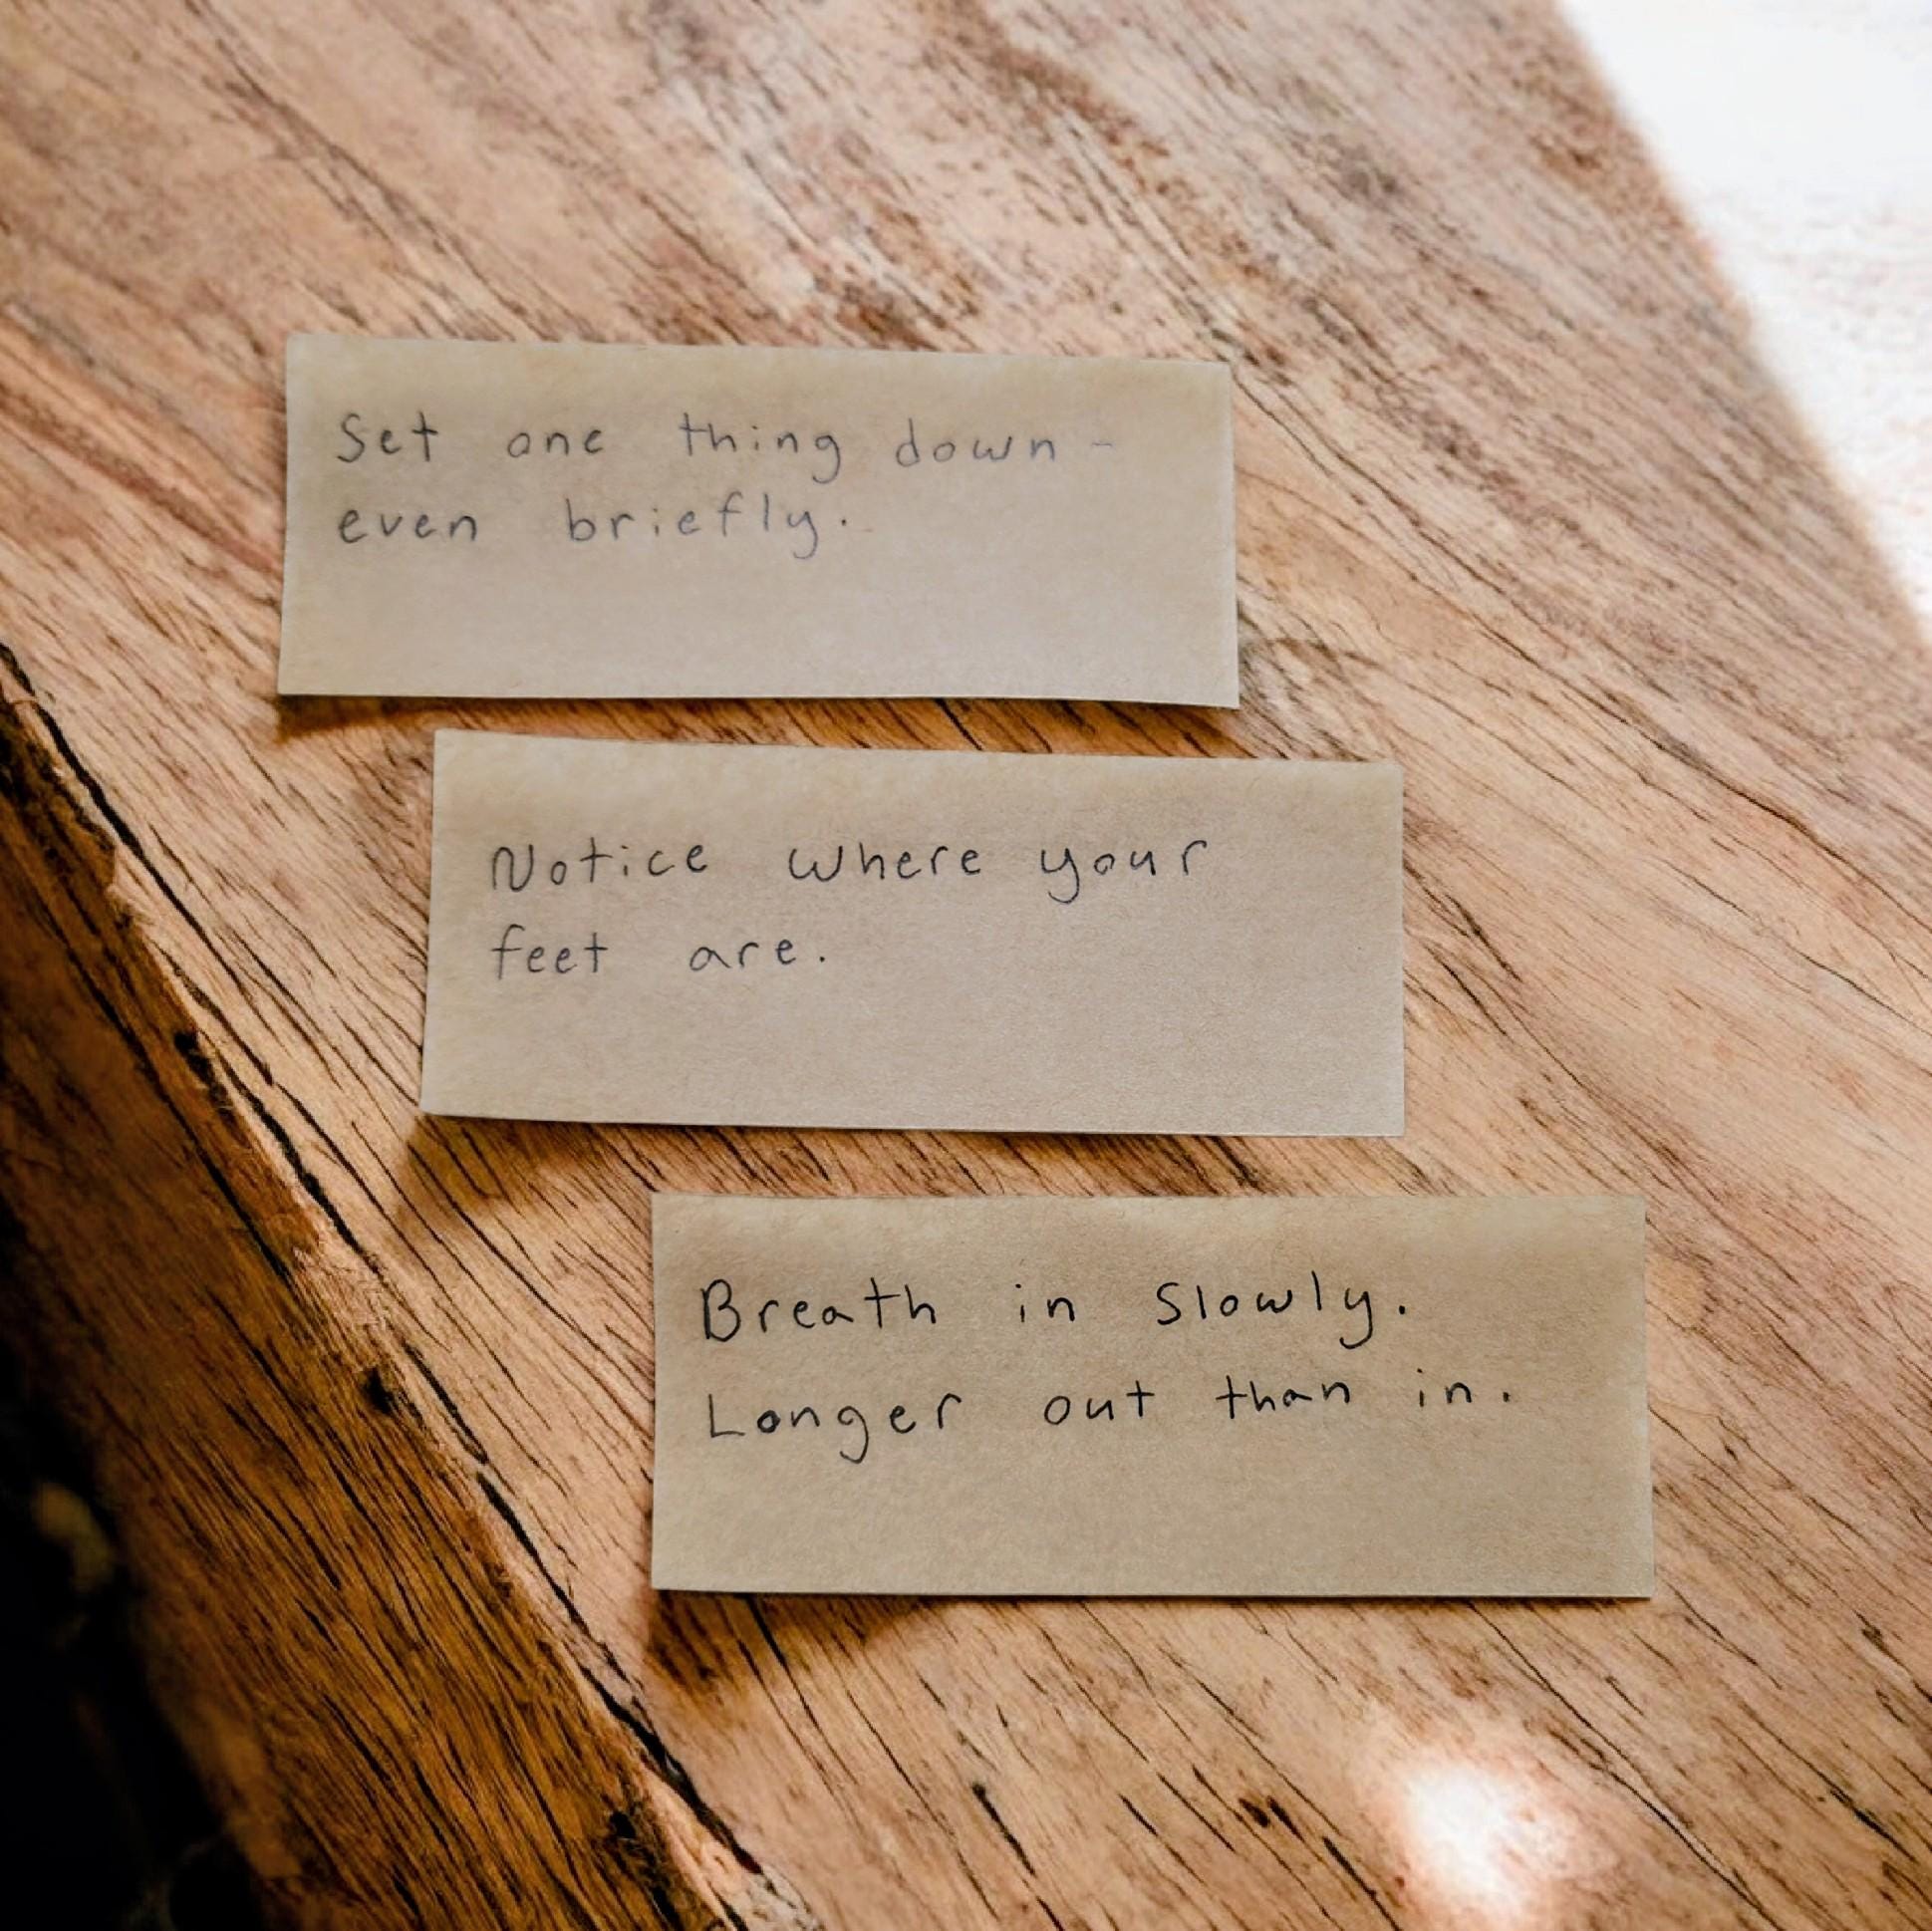 Set one thing down -
even briefly.
Notice where your
feet are.
Breath in slowly.
Longer out than in.